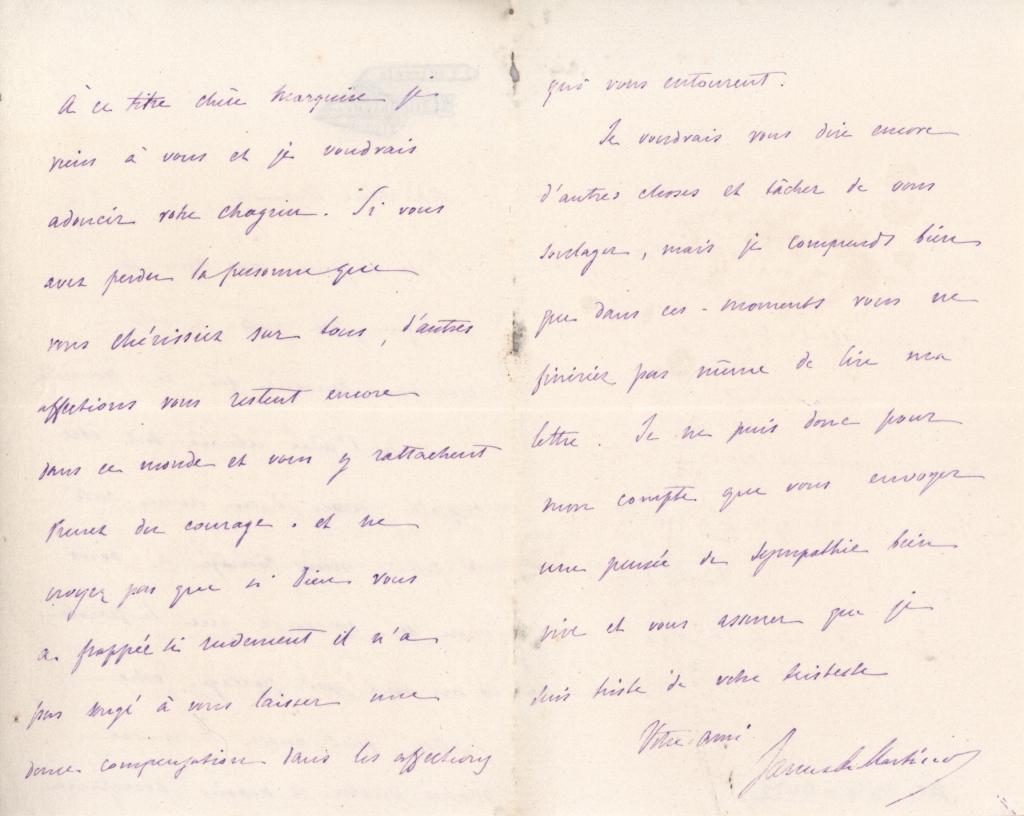 À ce titre chère Marquise je
viens à vous et je voudrais
adoucir votre chagrin. Si vous
avez perdu la personne que
vous chérissiez sur tous, d'autres
affections vous restent encore
dans ce monde et vous y rattachent
Prenez du courage. et ne
croyez pas que si Dieu vous
a frappée si rudement il n'a
pas songé à vous laisser une
douce compensation dans les affections
qui vous entourent.
Je voudrais vous dire encore
d'autres choses et tâcher de vous
soulager, mais je comprends bien
que dans ces moments vous ne
finiriez pas même de lire ma
lettre. Je ne puis donc pour
mon compte que vous envoyer
une pensée de sympathie bien
vive et vous assurer que je
suis triste de votre tristesse
Votre ami